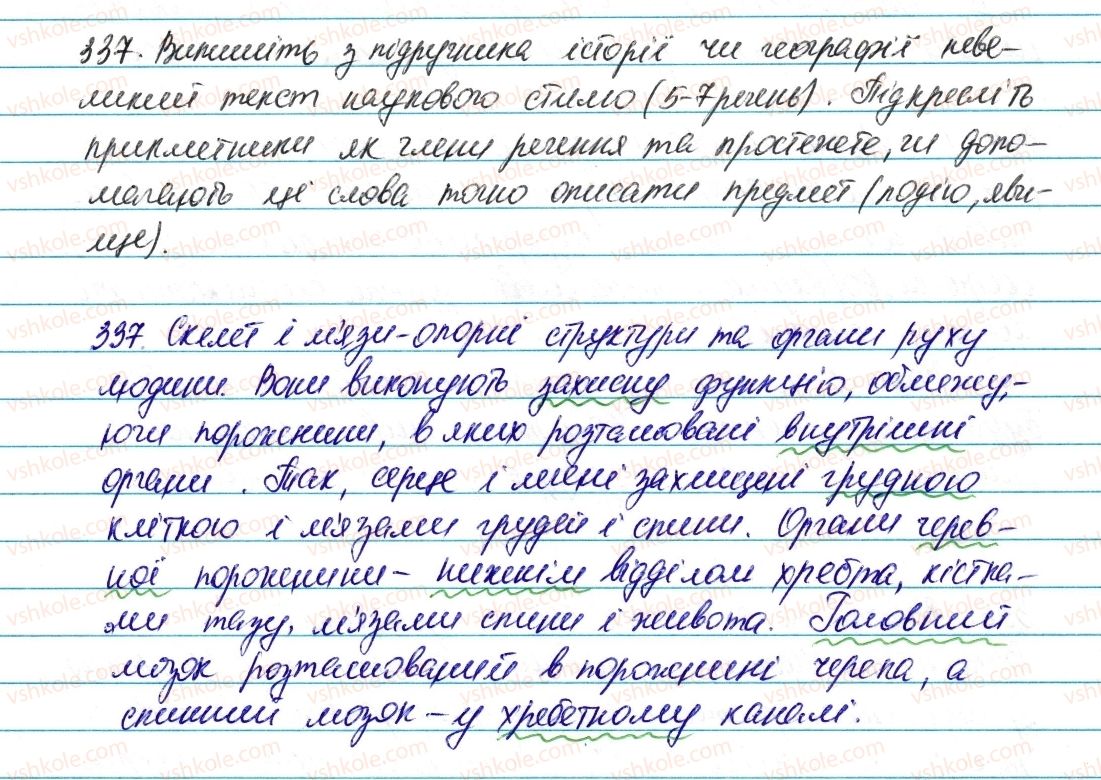 337. Випишіть з підручника історії чи географії неве-
ликий текст наукового стилю (5-7 речень). Підкресліть
прикметники як члени речення та простежте, чи допо-
магають ці слова точно описати предмет (подію, яви-
ще).
337. Скелет і м'язи - опорні структури та органи руху
людини. Вони виконують захисну функцію, обмежу-
ючи порожнини, в яких розташовані внутрішні
органи. Так, серце і легені захищені грудною
кліткою і м'язами грудей і спини. Органи черев-
ної порожнини - нижнім відділом хребта, кістка-
ми тазу, м'язами спини і живота. Головний
мозок розташований в порожнині черепа, а
спинний мозок - у хребетному каналі.